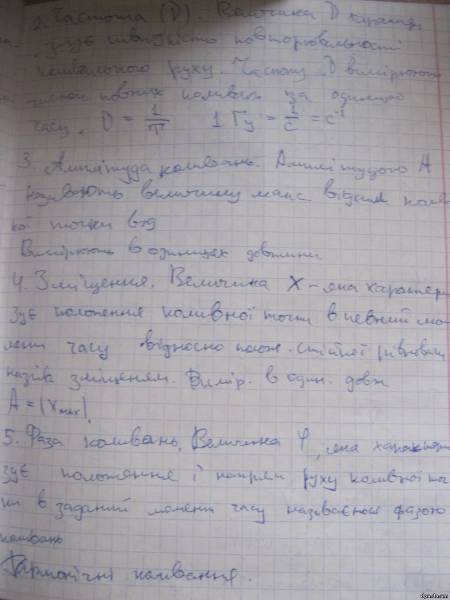 2. Частота (D). Величина D характери
зує швидкість повторювальності
коливального руху. Частоту D вимірюють
числом повних коливань за одиницю
часу. D = 1/T 1 Гц = 1/с = с⁻¹
3. Амплітуда коливань. Амплітудою А
називають величину макс відхил колив
ної точки від
Вимірюють в одиницях довжини.
4. Зміщення. Величина X – яка характери
зує положення коливної точки в певний мо
мент часу відносно полож. стійкої рівноваги
назив зміщенням. Вимір. в один. довж
A = |Xmax|.
5. Фаза коливань. Величина φ, яка характери
зує положення і напрям руху коливної то
чки в заданий момент часу називається фазою
коливань
Гармонічні коливання.